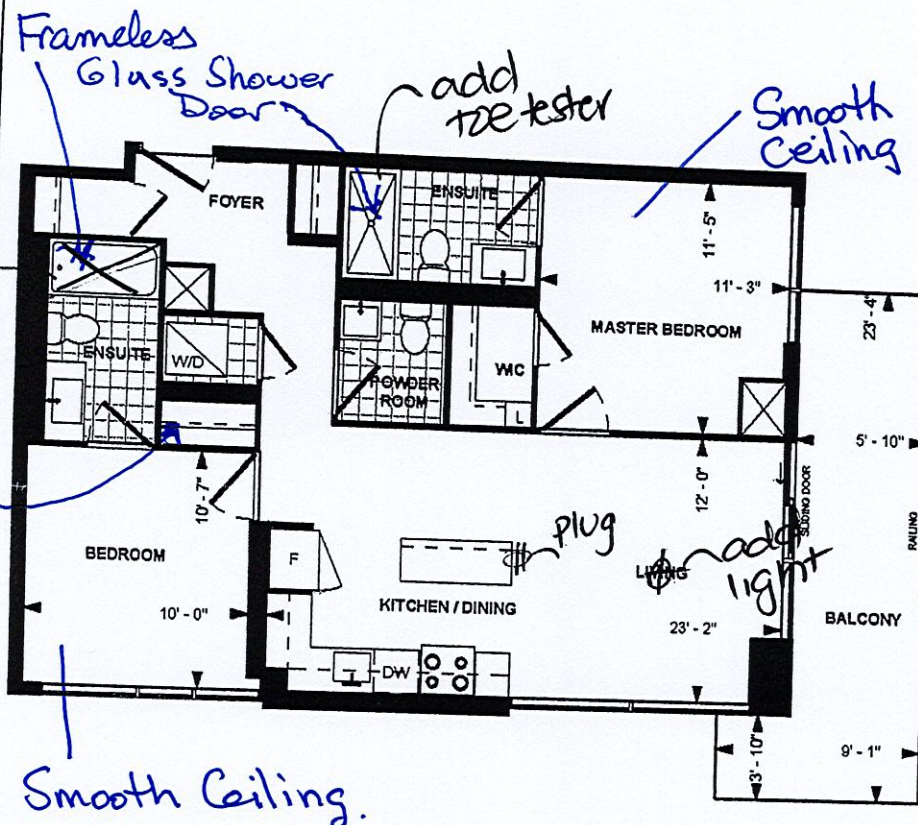 Frameless
Glass Shower
Door
add
toe tester
Smooth
Ceiling
FOYER
ENSUITE
11' - 5"
11' - 3"
23' - 4"
MASTER BEDROOM
ENSUITE
W/D
POWDER
ROOM
WIC
L
5' - 10"
10' - 7"
12' - 0"
SLIDING DOOR
RAILING
BEDROOM
F
plug
LIVING
add
light
10' - 0"
KITCHEN / DINING
23' - 2"
BALCONY
DW
3' - 10"
9' - 1"
Smooth Ceiling.